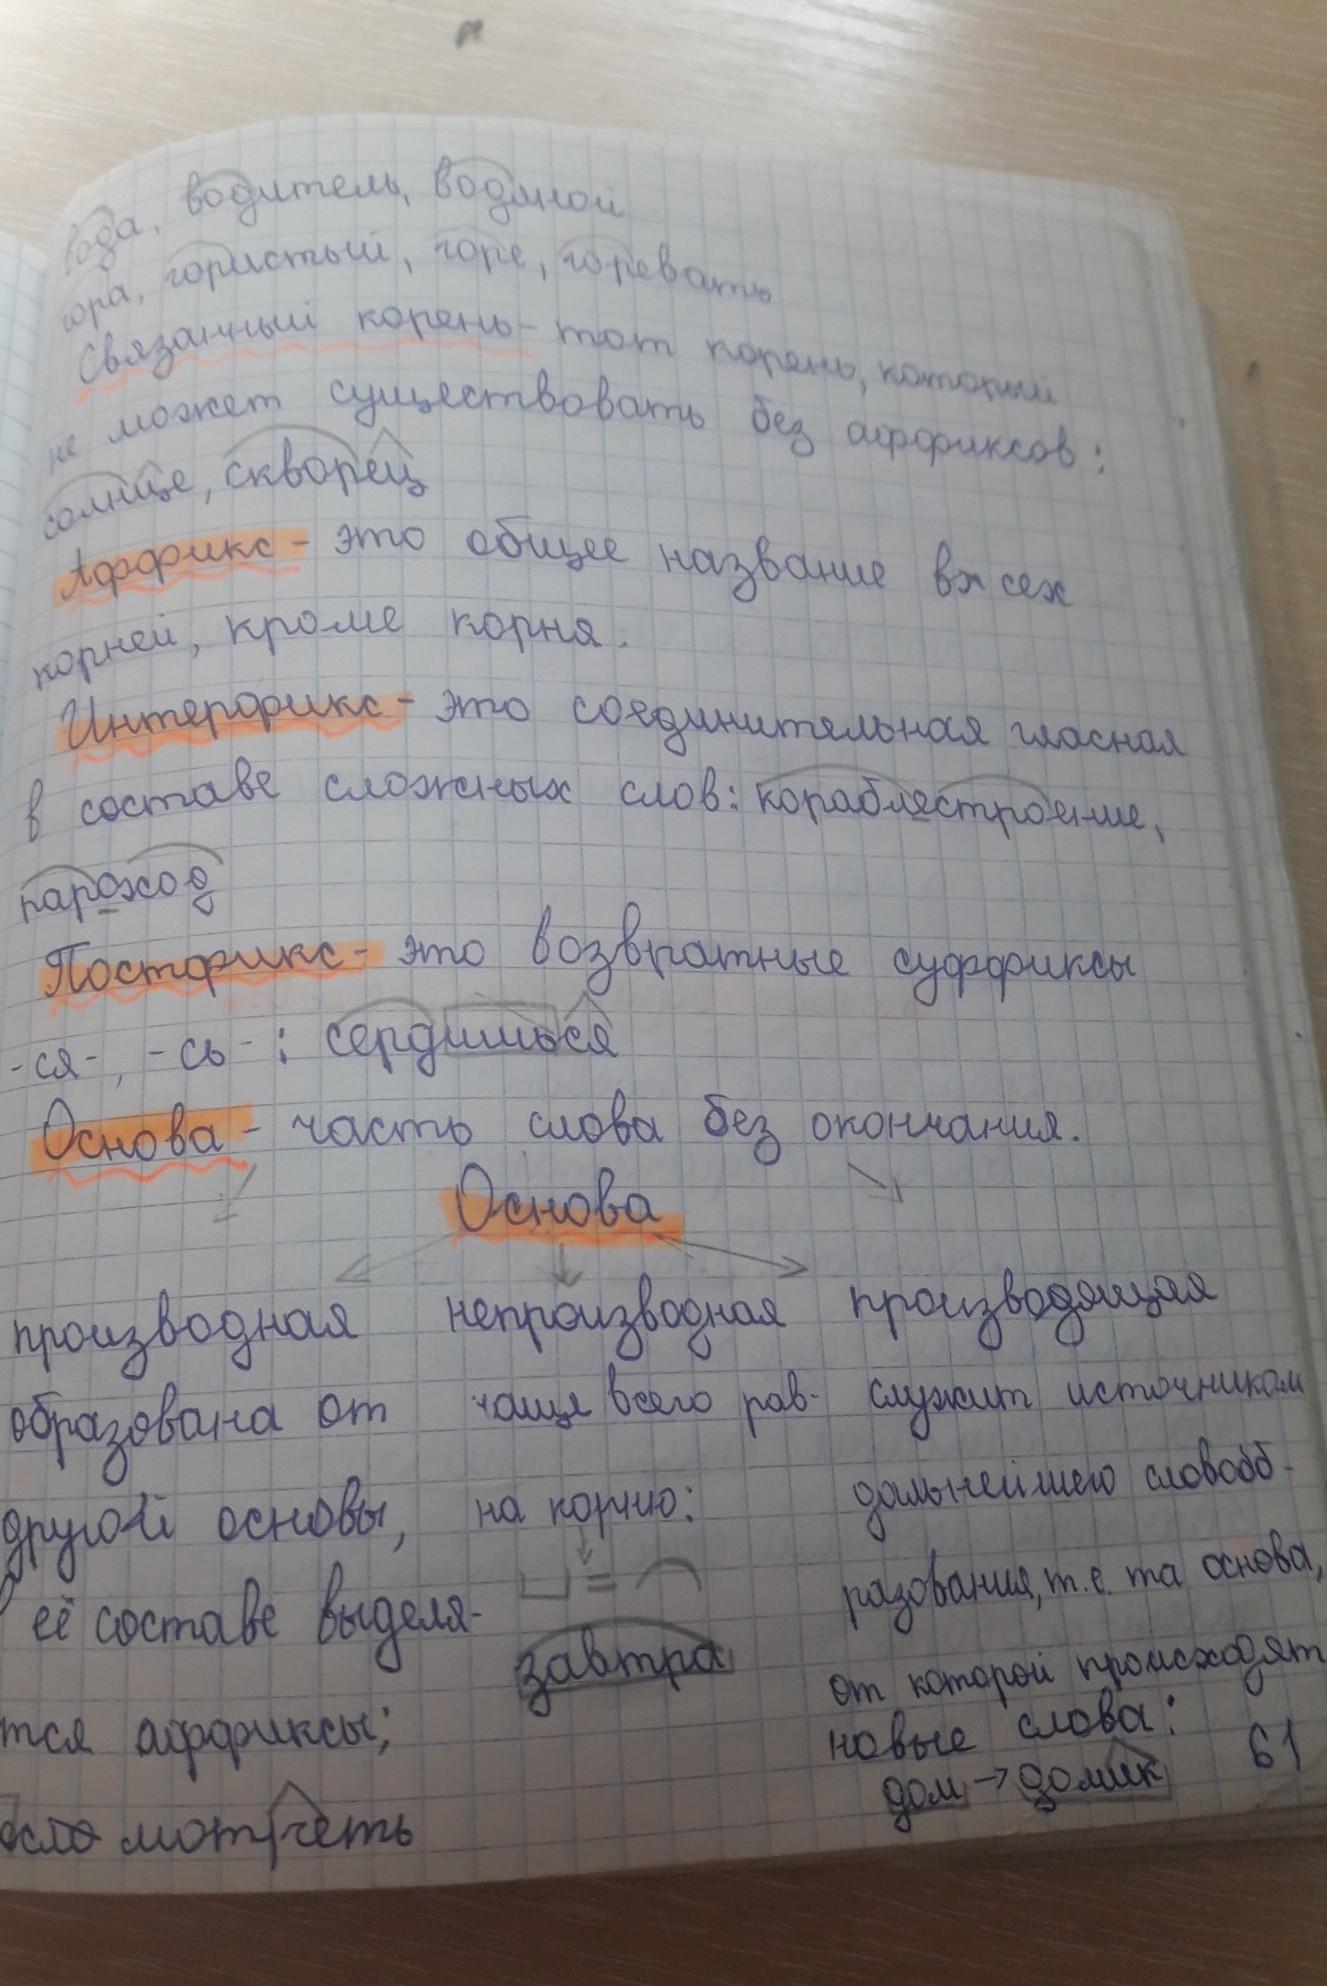 вода, водитель, водяной
гора, гористый, горе, горевать
Связанный корень - тот корень, который
не может существовать без аффиксов:
солнце, скворец
Аффикс - это общее название всех
корней, кроме корня.
Интерфикс - это соединительная гласная
в составе сложных слов: кораблестроение,
пароход
Постфикс - это возвратные суффиксы
-ся-, -сь- : сердишься
Основа - часть слова без окончания.
Основа
производная непроизводная производящая
образована от чаще всего рав- служит источником
другой основы, на корню: дальнейшего словооб-
её составе выделя- ⌴ = ⌒ разования, т.е. та основа,
завтра от которой происходят
тся аффиксы; новые слова: 61
дом → домик